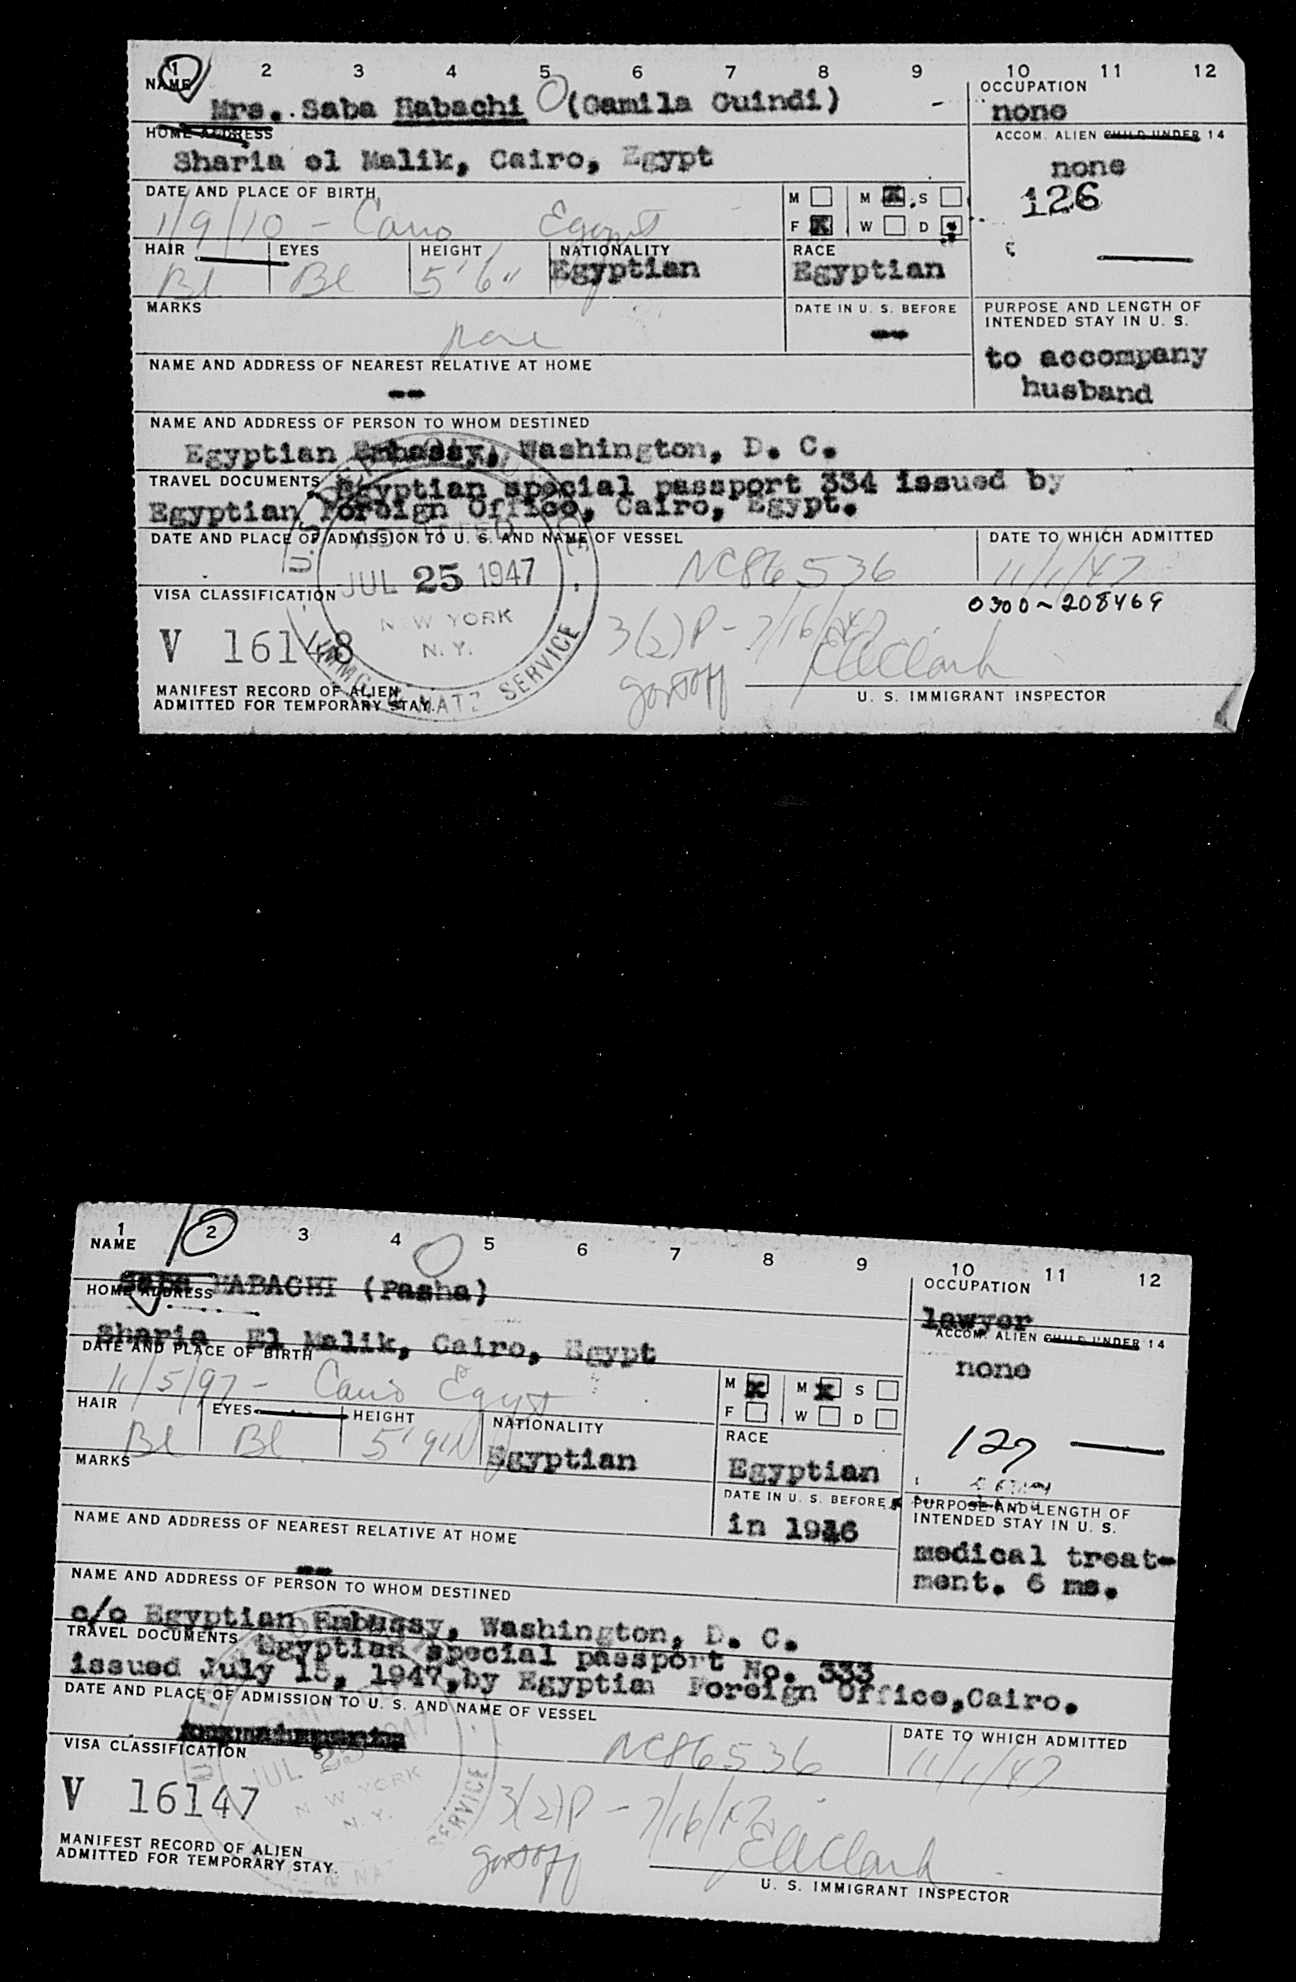 1 2 3 4 5 6 7 8 9 10 11 12
NAME
OCCUPATION
Mrs. Saba Habachi (Gamila Guindi)
none
HOME ADDRESS
ACCOM. ALIEN CHILD UNDER 14
Sharia el Malik, Cairo, Egypt
none
126
DATE AND PLACE OF BIRTH
M M S
1/9/10 - Cairo Egypt
F W D
HAIR EYES HEIGHT NATIONALITY RACE
Bl Bl 5'6" Egyptian Egyptian
MARKS
DATE IN U. S. BEFORE
PURPOSE AND LENGTH OF
INTENDED STAY IN U. S.
none
--
to accompany
husband
NAME AND ADDRESS OF NEAREST RELATIVE AT HOME
--
NAME AND ADDRESS OF PERSON TO WHOM DESTINED
Egyptian Embassy, Washington, D. C.
TRAVEL DOCUMENTS Egyptian special passport 334 issued by
Egyptian Foreign Office, Cairo, Egypt.
DATE AND PLACE OF ADMISSION TO U. S. AND NAME OF VESSEL
DATE TO WHICH ADMITTED
ADMITTED
JUL 25 1947
NEW YORK
N. Y.
U.S. IMMIG. & NATZ. SERVICE
NC86536
11/1/47
0300-208469
VISA CLASSIFICATION
V 16148
3(2)P - 7/16/47
EllClark
MANIFEST RECORD OF ALIEN
ADMITTED FOR TEMPORARY STAY.
U. S. IMMIGRANT INSPECTOR
1 2 3 4 5 6 7 8 9 10 11 12
NAME
OCCUPATION
Saba HABACHI (Pasha)
lawyer
HOME ADDRESS
ACCOM. ALIEN CHILD UNDER 14
Sharia El Malik, Cairo, Egypt
none
DATE AND PLACE OF BIRTH
M M S
11/5/97 - Cairo Egypt
F W D
127
HAIR EYES HEIGHT NATIONALITY RACE
Bl Bl 5'9" Egyptian Egyptian
MARKS
DATE IN U. S. BEFORE
in 1946
PURPOSE AND LENGTH OF
INTENDED STAY IN U. S.
medical treat-
ment. 6 ms.
NAME AND ADDRESS OF NEAREST RELATIVE AT HOME
--
NAME AND ADDRESS OF PERSON TO WHOM DESTINED
c/o Egyptian Embassy, Washington, D. C.
TRAVEL DOCUMENTS Egyptian special passport No. 333
issued July 15, 1947, by Egyptian Foreign Office, Cairo.
DATE AND PLACE OF ADMISSION TO U. S. AND NAME OF VESSEL
DATE TO WHICH ADMITTED
NC86536
11/1/47
JUL 25 1947
NEW YORK
N. Y.
VISA CLASSIFICATION
V 16147
3(2)P - 7/16/47
EllClark
MANIFEST RECORD OF ALIEN
ADMITTED FOR TEMPORARY STAY.
U. S. IMMIGRANT INSPECTOR